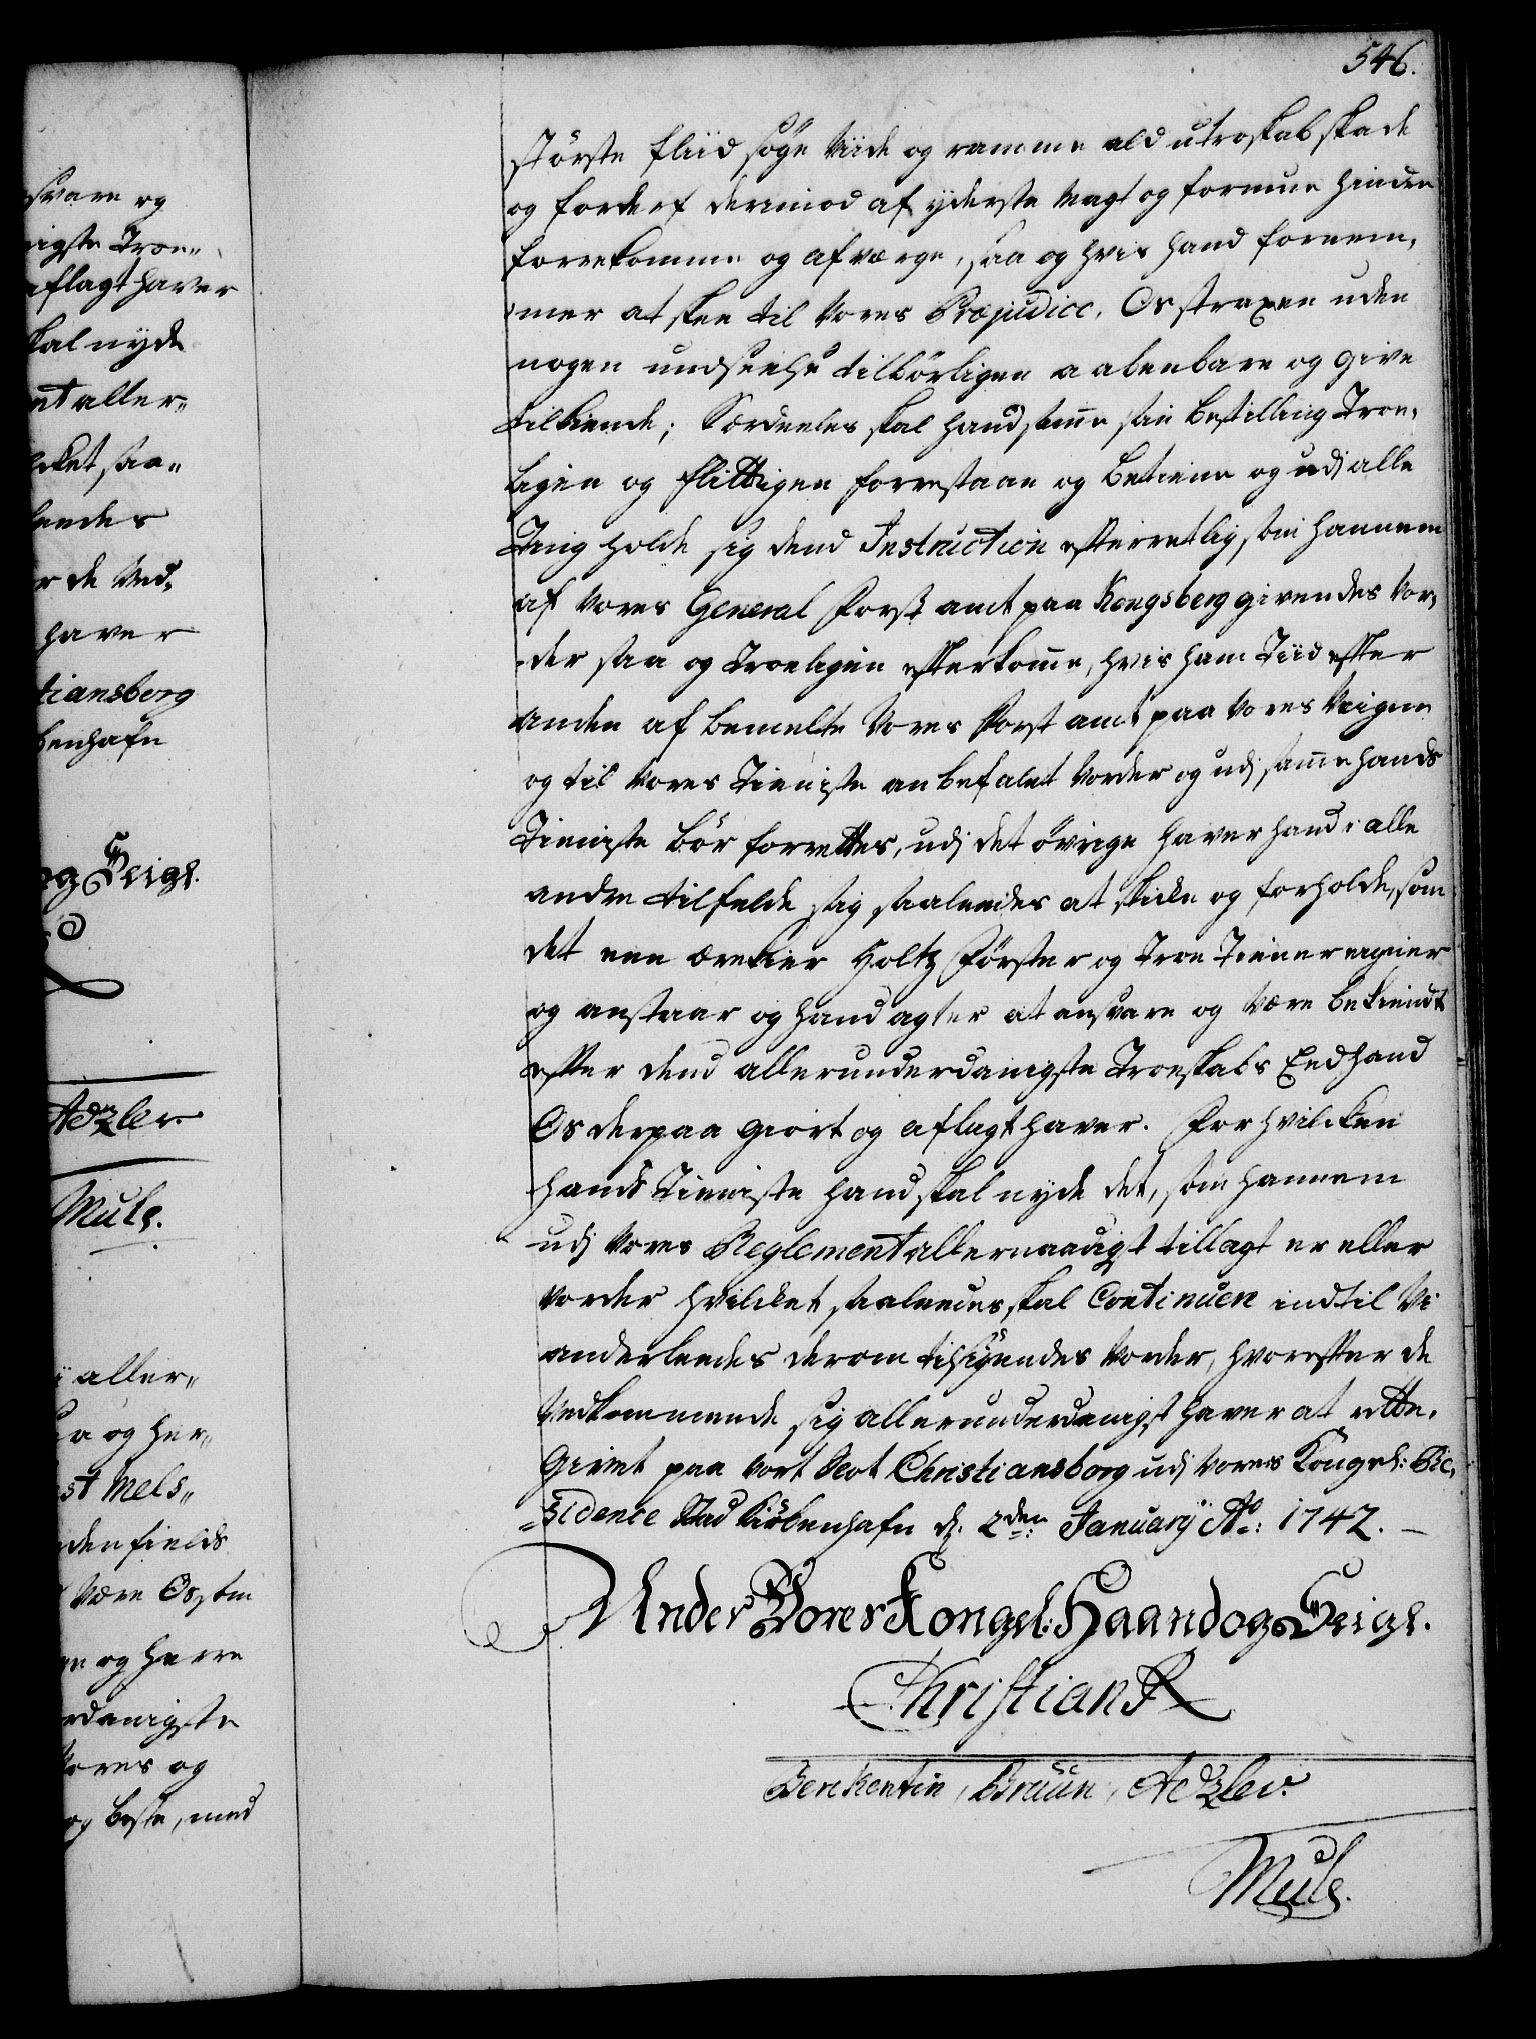 546.
störste fliid söge Viide og ramme ald utroskab skade
og forderf derimod af yderste Magt og formue hindre
forrekomme og afværge, saa og hvis hand fornem,
mer at skee til Vores Præjudice, Os straxen uden
nogen undseelse tilbörligen aabenbare og give
tilkiende; Særdeeles skal hand samme sin bestilling Troe,
ligen og flittigen forrestaae og betiene og udj alle
Ting holde sig dend Instruction efterretlig som hannem
af Vores General Forst amt paa Kongsberg givendes Vor,
der saa og troeligen efterkomme, hvis ham Tiid efter
anden af bemelte Vores Forst amt paa Vores Veigne
og til Vores Tieniste anbefalet Vorder og udj samme hands
Tieniste bör forrettes, udj det övrige haver hand i alle
andre tilfelde sig saaleedes at skicke og forholde, som
det een ærekier Holtz Förster og Troe Tiener eigner
og anstaar og hand agter at ansvare og være bekiendt
efter dend allerunderdanigste Troeskabs Eed hand
Os derpaa giort og aflagt haver. For hvilcken
hands Tieniste hand skal nyde det, som hannem
udj Vores Reglement allernaadigst tillagt er eller
vorder hvilcket saaleedes skal Continuere indtil Vi
anderleedes derom tilsigendes Vorder, hvorefter de
Vedkommende sig allerunderdanigst haver at rette.
Givet paa Vort Slot Christiansborg udj Vores Kongel: Re,
sidence Stad Kiöbenhafn d: 2den January Ao: 1742.
Under Vores Kongel: Haand og Seigl.
Christian R
Berckentin, Bruun, Adzler.
Mule.
svare og
nigste Troe„
aflagt haver
skal nyde
ent aller„
lcket saa„
leedes
r de Ved„
haver
tiansborg
benhafn
og Seigl.
Adzler.
Mule.
i aller„
a og her„
st Mels„
denfields
være Os som
re og Herre
rdanigste
Vores og
og beste, med